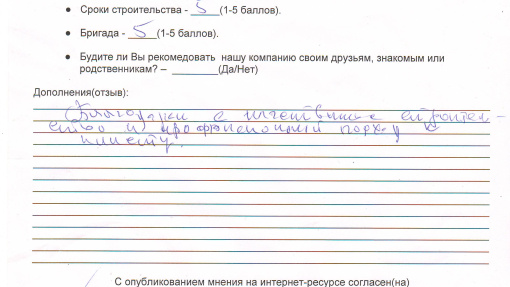 • Сроки строительства - 5 (1-5 баллов).
• Бригада - 5 (1-5 баллов).
• Будите ли Вы рекомедовать нашу компанию своим друзьям, знакомым или
родственникам? – ________(Да/Нет)
Дополнения(отзыв):
Благодарим
ство и
клиенту.
С опубликованием мнения на интернет-ресурсе согласен(на)